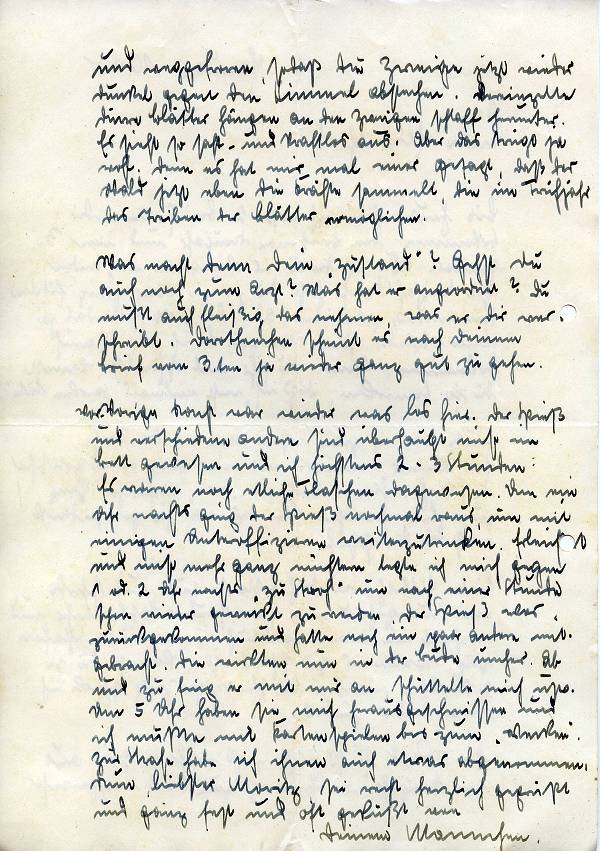 und weggefroren, sodaß die Zweige jetzt wieder
dunkel gegen den Himmel abstehen. Vereinzelte
dürre Blätter hängen an den Zweigen schlaff herunter.
Es sieht so saft- und kraftlos aus. Aber das trügt ja
wohl, denn es hat mir mal einer gesagt, daß der
Wald jetzt eben die Kräfte sammelt, die im Frühjahr
das Treiben der Blätter ermöglichen.
Was macht denn Dein „Zustand"? Gehst Du
auch noch zum Arzt? Was hat er angeordnet? Du
mußt auch fleißig das nehmen, was er dir ver-
schreibt. Dorothenchen scheint es nach Deinem
Brief vom 3.ten ja wieder ganz gut zu gehen.
vorvorige Nacht war wieder was los hier. Der Spieß
und verschiedene andere sind überhaupt nicht im
Bett gewesen und ich höchstens 2-3 Stunden.
Es waren noch etliche Flaschen dagewesen. Um ein
Uhr nachts ging der Spieß nochmal raus, um mit
einigen Unteroffizieren weiterzutrinken.
und nicht mehr ganz nüchtern legte ich mich gegen
1 od. 2 Uhr nachts „zu Storch" um nach einer Stunde
schon wieder geweckt zu werden. Der Spieß war
zurückgekommen und hatte noch ein paar Andere mit-
gebracht. Die wirkten nun in der Bude umher. Ab
und zu fing er mit mir an, schüttelte mich usw.
Um 5 Uhr haben sie mich herausgeschmissen und
ich mußte mit Kartenspielen bis zum „Wecken".
Zur Strafe habe ich ihnen auch etwas abgenommen.
Nun, liebster Moritz, sei recht herzlich gegrüßt
und ganz fest und oft geküßt von
Deinem Mannchen.